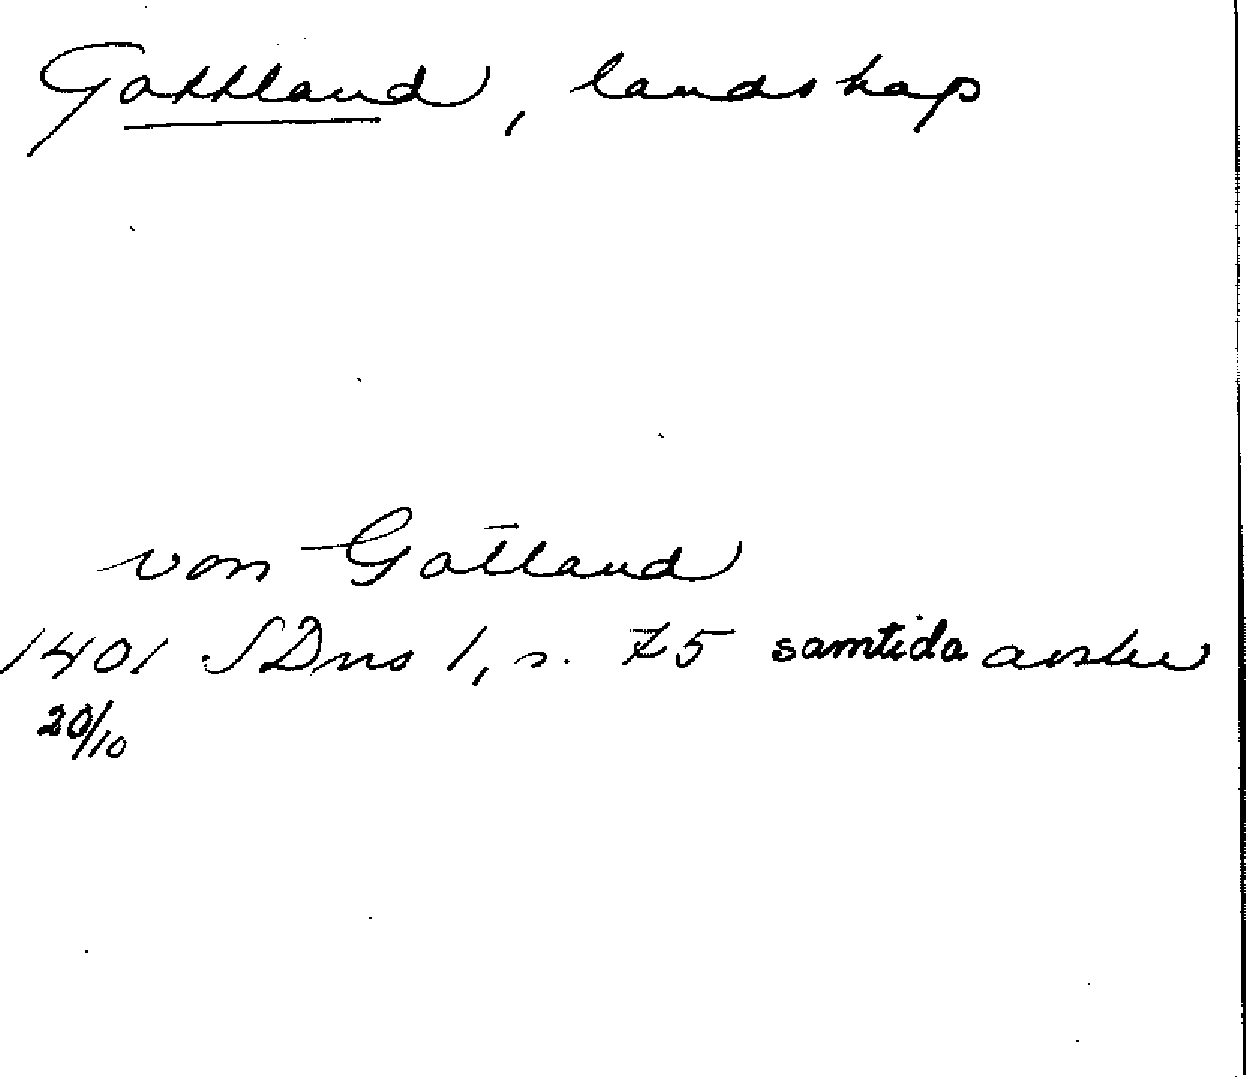 Gottland, landskap
von Gotland
1401 SDns 1, s. 75 samtida avskr
20/10